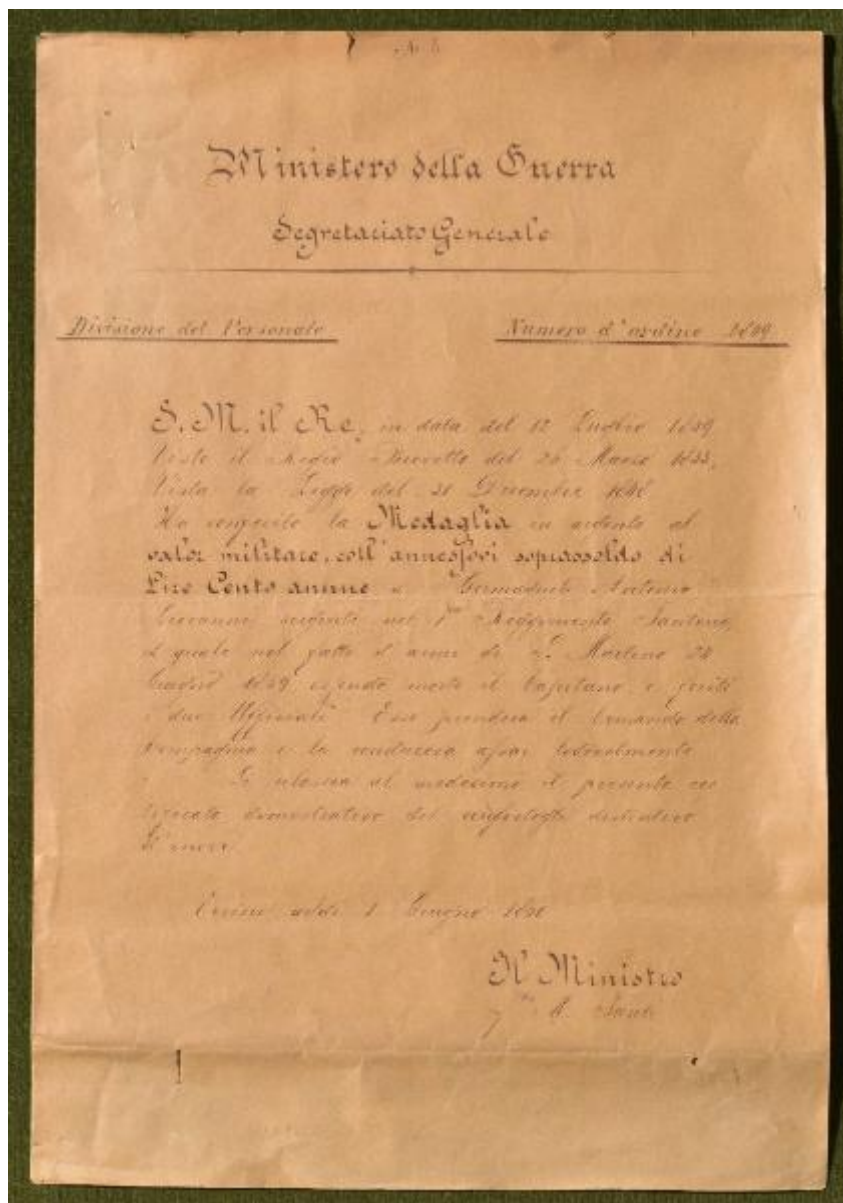 Ministero della Guerra
Segretariato Generale
Divisione del Personale
Numero d'ordine
S. M. il Re, in data del 12 Luglio 1859
Visto il Regio Brevetto del 26 Marzo 1833,
Vista la Legge del Dicembre
Ha conferito la Medaglia in argento al
valor militare, coll' soprassoldo di
Lire Cento annue a Antonio
Giovanni nel 1° Reggimento
il quale nel fatto d'armi di S. Martino 24
Giugno 1859 essendo morto il Capitano e feriti
i due Uffiziali Esso prendeva il Comando della
Compagnia e la conduceva assai lodevolmente
Si rilascia al medesimo il presente cer
tificato dimostrativo del distintivo
d'onore.
addì 1 Giugno
Il Ministro